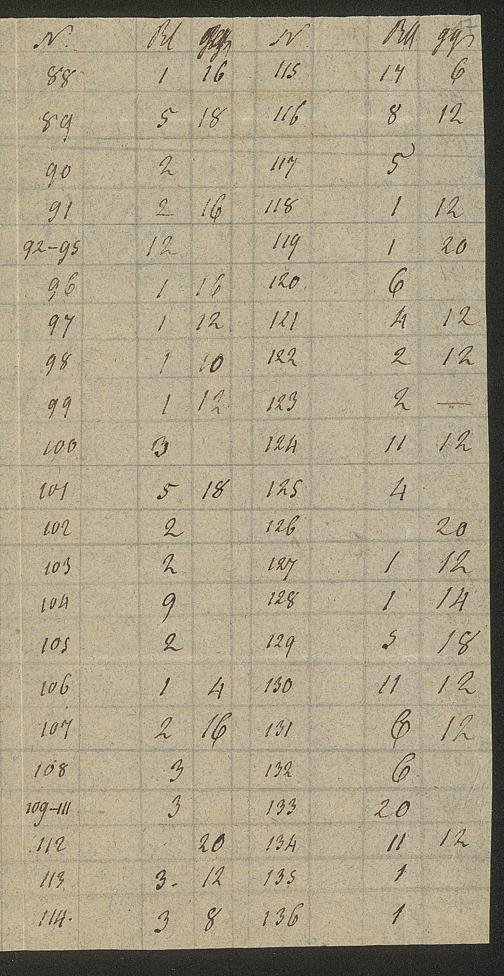 N. Rl ggr N. Rll ggr
88 1 16 115 17 6
89 5 18 116 8 12
90 2 117 5
91 2 16 118 1 12
92-95 12 119 1 20
96 1 16 120 6
97 1 12 121 4 12
98 1 10 122 2 12
99 1 12 123 2 —
100 3 124 11 12
101 5 18 125 4
102 2 126 20
103 2 127 1 12
104 9 128 1 14
105 2 129 5 18
106 1 4 130 11 12
107 2 16 131 6 12
108 3 132 6
109-111 3 133 20
112 20 134 11 12
113 3. 12 135 1
114. 3 8 136 1